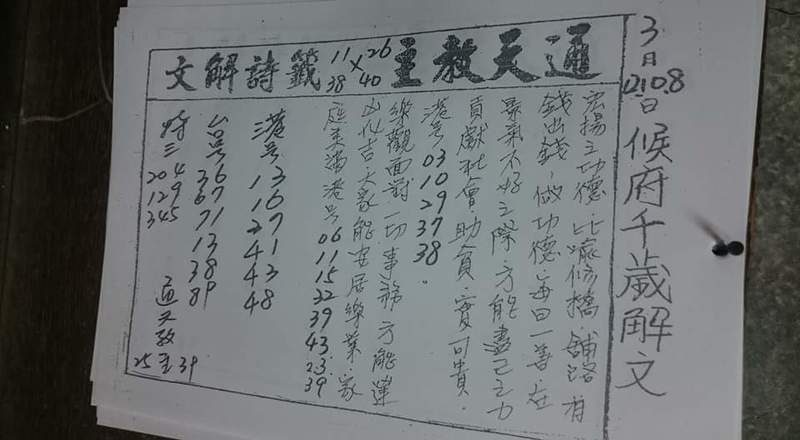 3月
12.10.8日
候府千歲解文
通天教主
11 26
×
38 40
籤詩解文
宏揚之功德.比喻修橋.舖路有
錢出錢.做功德.每日一善在
景氣不好之際.方能盡己之力
貢獻社會.助貧.實可貴.
港号 03 10 29 37 38.
樂觀面對一切事務方能運
凶化吉大家能安居樂業.家
庭美滿港号 06 11 15 32 39 43 23 39
港号 13 16 27 41 43 48
台号 36 67 71 13 38 89
特三 204 129 345
通天教主
25 39